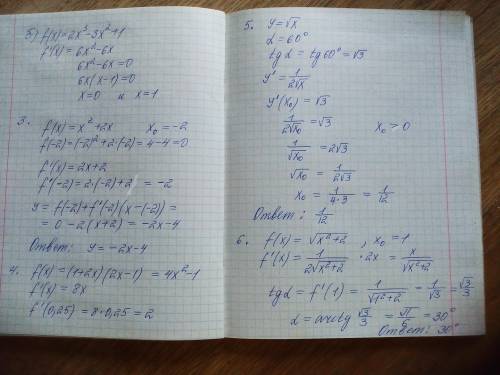 б) f(x)=2x³-3x²+1
f'(x)=6x²-6x
6x²-6x=0
6x(x-1)=0
x=0 и x=1
3.
f(x)=x²+2x x₀=-2
f(-2)=(-2)²+2·(-2)=4-4=0
f'(x)=2x+2
f'(-2)=2·(-2)+2=-2
y=f(-2)+f'(-2)(x-(-2))=
=0-2(x+2)=-2x-4
Ответ: y=-2x-4
4. f(x)=(1+2x)(2x-1)=4x²-1
f'(x)=8x
f'(0,25)=8·0,25=2
5. y=√x
α=60°
tgα=tg60°=√3
y'=1/(2√x)
y'(x₀)=√3
1/(2√x₀)=√3 x₀>0
1/√x₀=2√3
√x₀=1/(2√3)
x₀=1/(4·3)=1/12
Ответ: 1/12
6. f(x)=√(x²+2), x₀=1
f'(x)=1/(2√(x²+2))·2x=x/√(x²+2)
tgα=f'(1)=1/√(1²+2)=1/√3=√3/3
α=arctg √3/3=π/6=30°
Ответ: 30°